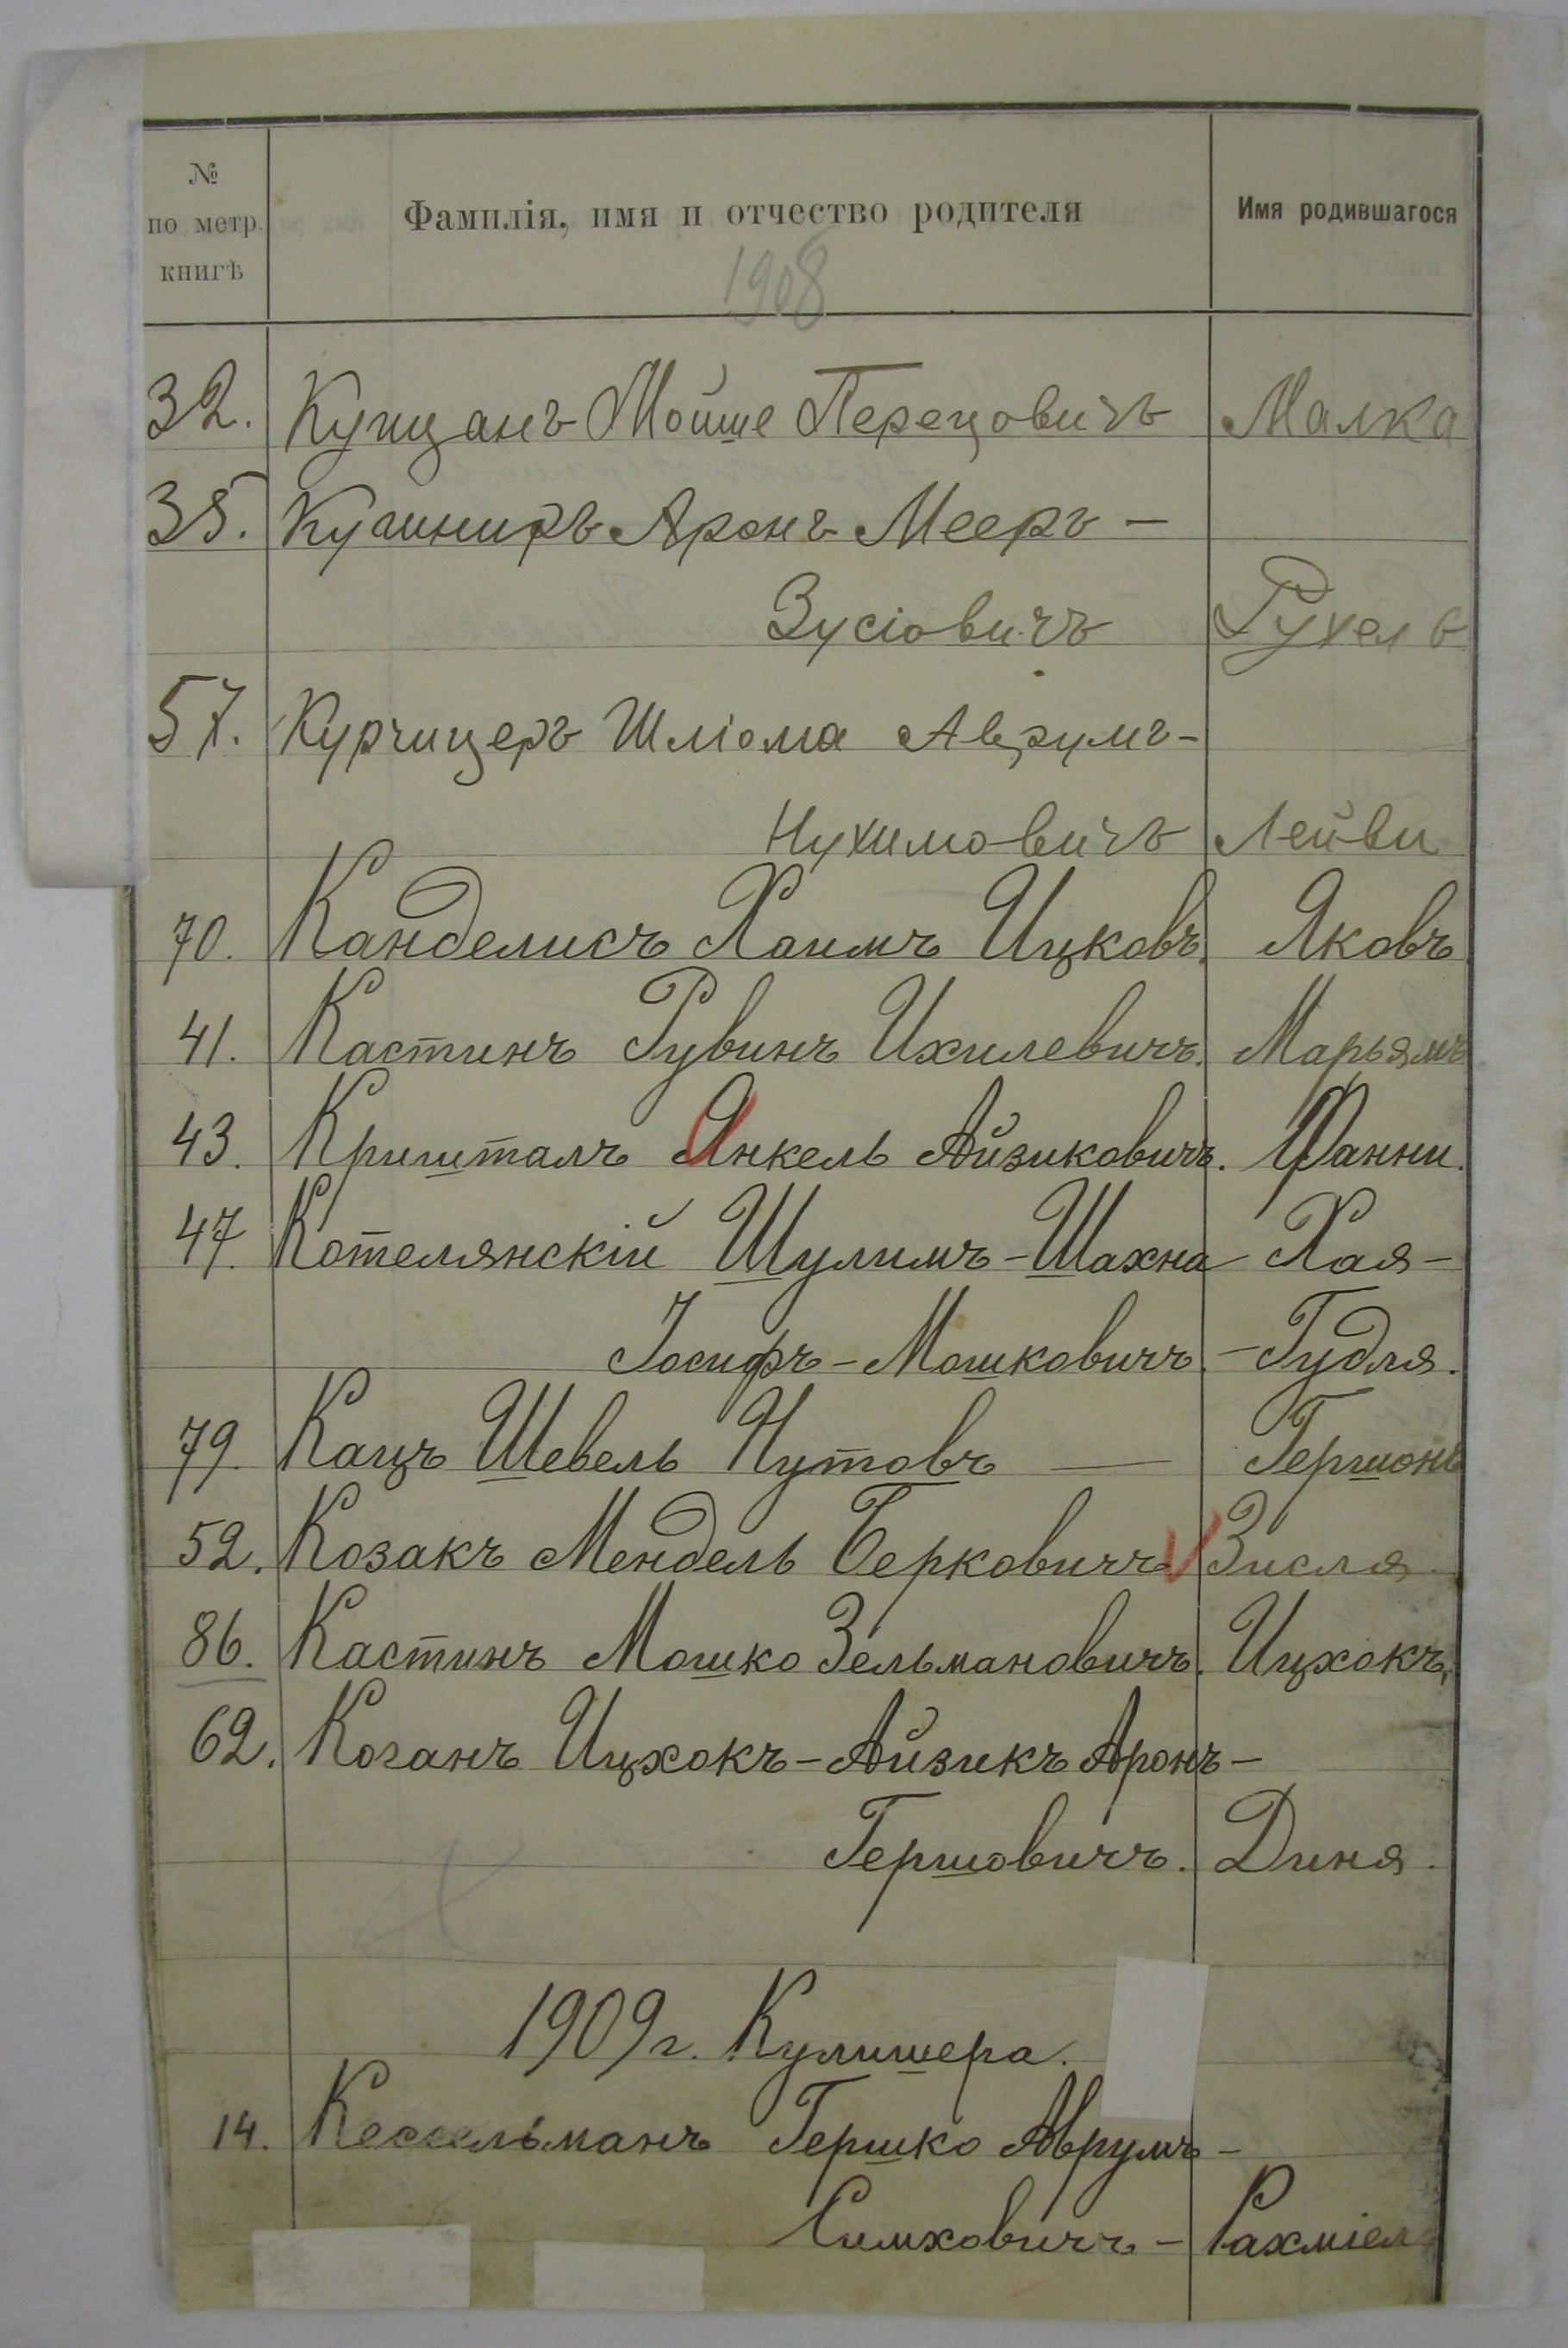 № по метр. книгѣ Фамилія, имя и отчество родителя Имя родившагося
1908
32. Купцанъ Мойше Перецовичъ Малка
35. Кушниръ Аронъ Мееръ-
Зусіовичъ Рухель
57. Курчицеръ Шліома Аврумъ-
Нухимовичъ Лейви
70. Канделисъ Хаимъ Ицковъ. Яковъ
41. Кастинъ Рувинъ Ихилевичъ. Марьямъ
43. Кришталъ Янкель Айзиковичъ. Фанни.
47. Котелянскій Шулимъ-Шахна Хая-
Іосифъ-Мошковичъ. -Гудля.
79. Кацъ Шевель Нутовъ — Гершонъ
52. Козакъ Мендель Берковичъ Зисля.
86. Кастинъ Мошко Зельмановичъ. Ицхокъ.
62. Коганъ Ицхокъ-Айзикъ Аронъ-
Гершовичъ. Диня.
1909 г. Кулишера.
14. Кессельманъ Гершко Аврумъ-
Симховичъ- Рахміел